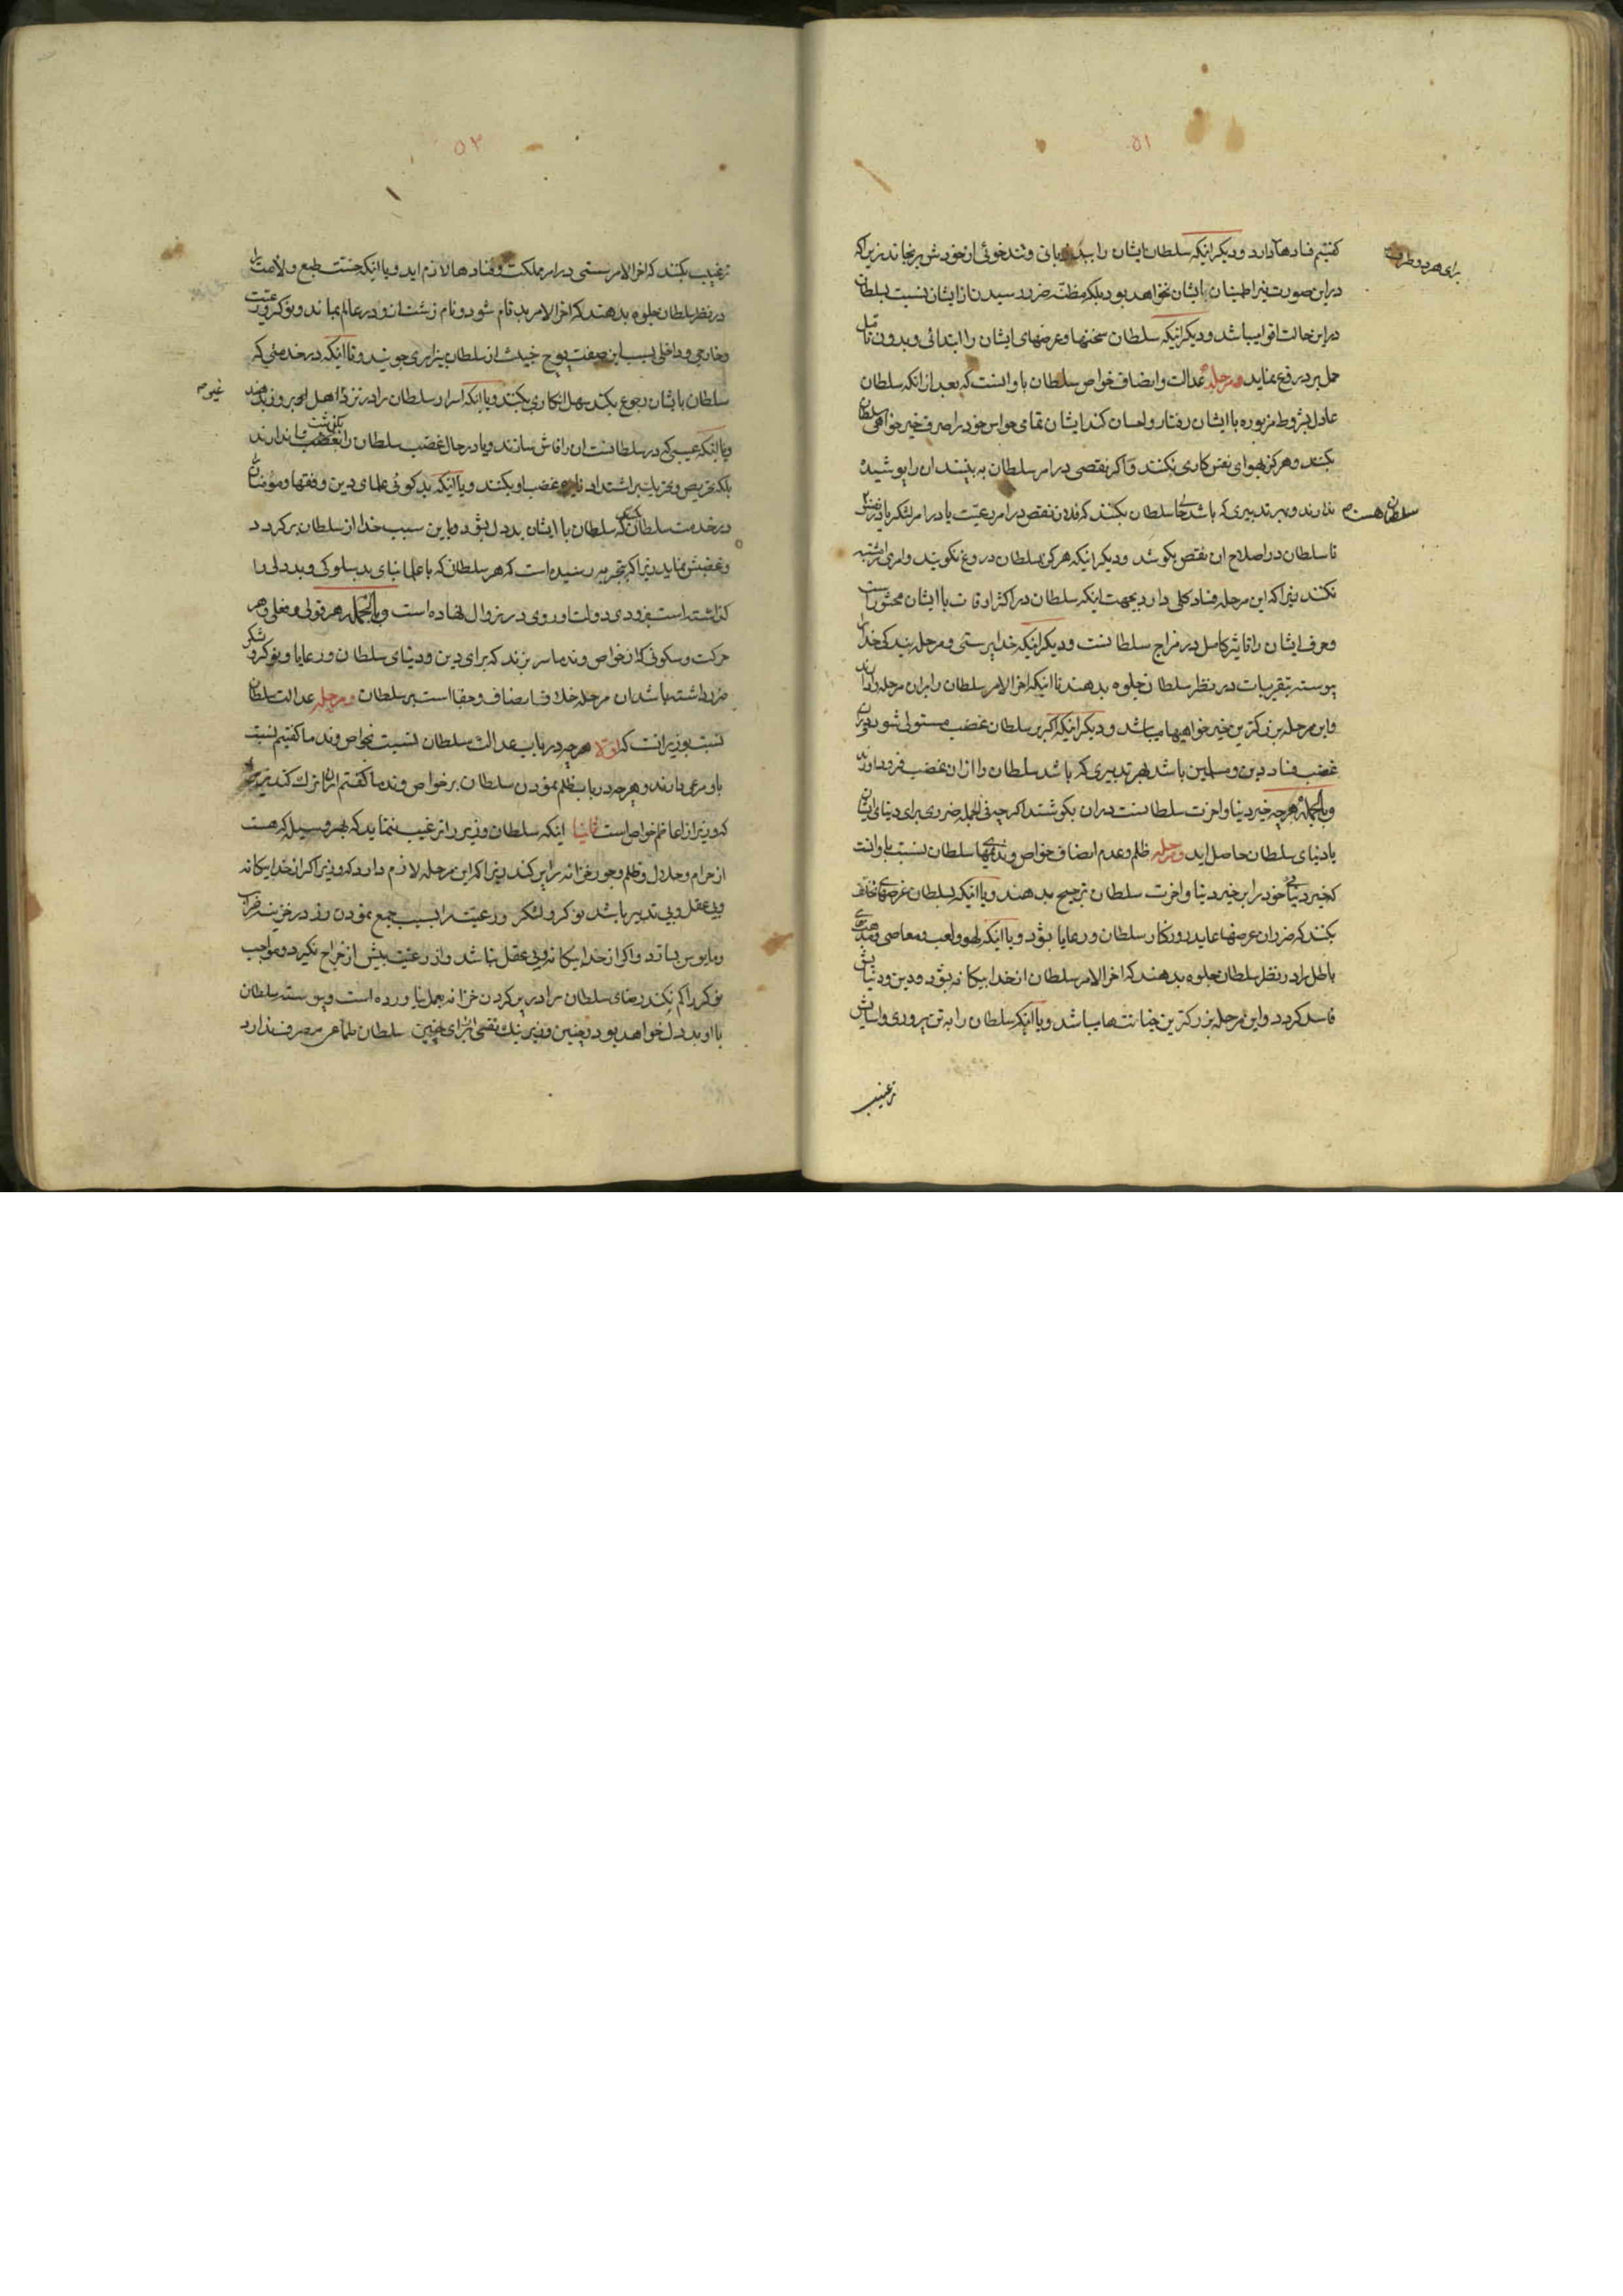 ۵۱
کفتیم فسادها دارد و دیکر اینکه سلطان ایشان را ببد زبانی و تندخوئی از خودش نرنجاند زیرا که
برای هر دو طرف
در این صورت نیز اطمینان بایشان نخواهد بود بلکه مظنه ضرر رسیدن از ایشان نسبت بسلطان
در این حالت اقوا میباشد و دیکر اینکه سلطان سخنها و عرضهای ایشان را ابتدائی و بدون تامل
حمل بر دروغ ننماید و مرحله عدالت و انصاف خواص سلطان باو انست که بعد از انکه سلطان
عادل بشروط مزبوره با ایشان رفتار و احسان کند ایشان تمامی حواس خود را صرف خیر خواهی سلطان
بکنند و هرکز بهوای نفس کاری نکنند و اکر نقصی در امر سلطان به بینند ان را پوشیده
ندارند و بهر تدبیری که باشد حالی سلطان بکنند که فلان نقص در امر رعیّت یا در امر لشکر یا در نفس
سلطان هست
تا سلطان در اصلاح ان نقص بکوشد و دیکر اینکه هرکز بسلطان دروغ نکویند و امری را مشتبه
نکنند زیرا که این مرحله فساد کلی دارد بجهت اینکه سلطان در اکثر اوقات با ایشان محشور است
و حرف ایشان را تاثیر کامل در مزاج سلطانست و دیکر اینکه خدا پرستی و مرحله بندکی خدا را
پیوسته بتقریبات در نظر سلطان جلوه بدهند تا اینکه اخر الامر سلطان را بران مرحله وادارند
و این مرحله بزرکترین خیر خواهیها میباشد و دیکر اینکه اکر بر سلطان غضب مستولی شود و در ان
غضب فساد دین و مسلمین باشد بهر تدبیری که باشد سلطان را از ان غضب فرود اورند
و بالجمله هر چه خیر دنیا و اخرت سلطانست در ان بکوشند اکر چه فی الجمله ضرری برای دنیای ایشان
یا دنیای سلطان حاصل اید و مرحله ظلم و عدم انصاف خواص و ندیمهای سلطان نسبت باو انست
که خیر دنیای خود را بر خیر دنیا و اخرت سلطان ترجیح بدهند و یا اینکه بسلطان عرضهای مخالف
بکنند که ضرر ان عرضها عاید روزکار سلطان و رعایا بشود و یا اینکه لهو و لعب و معاصی و مذهبهای
باطل را در نظر سلطان جلوه بدهند که اخر الامر سلطان از خدا بیکانه بشود و دین و دنیایش
فاسد کردد و این مرحله بزرکترین خیانتها میباشد و یا اینکه سلطان را به تن پروری و اسایش
ترغیب
۵۲
ترغیب بکنند که اخر الامر سستی در امر مملکت و فسادها لازم اید و یا اینکه خسّت طبع و لأمت را
در نظر سلطان جلوه بدهند که اخر الامر بد نام شود و نام زشت او در عالم بماند و نوکر و رعیّت
و خارجی و داخلی بسبب این صفت پوچ خبیث از سلطان بیزاری جویند و یا اینکه در خدمتی که
سلطان بایشان رجوع بکند سهل انکاری بکنند و یا اینکه اسرار سلطان را در نزد اهل
غیر
و یا اینکه عیبی که در سلطانست ان را فاش سازند و یا در حال غضب سلطان را
بلکه تحریص و تحریک بر اشتداد غضب او بکنند و یا اینکه بد کوئی علمای دین و فقها و مؤمنان
در خدمت سلطان بکنند که سلطان با ایشان بد دل بشود و باین سبب خدا از سلطان برکردد
و غضبش نماید زیرا که بتجربه رسیده است که هر سلطان که با علما بنای بد سلوکی و بد دلی را
کذاشته است بزودی دولت او روی در زوال نهاده است و بالجمله هر قولی و فعلی و هر
حرکت و سکونی که از خواص و ندما سر بزند که برای دین و دنیای سلطان و رعایا و نوکر و لشکر
ضرر داشته باشد ان مرحله خلاف انصاف و جفا است بر سلطان و مرحله عدالت سلطان
نسبت بوزیر انست که اوّلا هر چه در باب عدالت سلطان نسبت بخواص و ندما کفتیم نسبت
باو مرعی دارند و هر چه در باب ظلم نمودن سلطان بر خواص و ندما کفتیم ان را ترک کند
که وزیر از اعاظم خواص است ثانیا اینکه سلطان وزیر را ترغیب ننماید که بهر وسیله که هست
از حرام و حلال و ظلم و جور خزانه را پر کند زیرا که این مرحله لازم دارد که وزیر اکر از خدا بیکانه
و بی عقل و بی تدبیر باشد نوکر و لشکر و رعیّت را بسبب جمع نمودن زر در خزینه خراب
و مایوس بسازد و اکر از خدا بیکانه و بی عقل نباشد و از رعیّت بیش از خراج نکیرد و مواجب
نوکر را کم نکند رضای سلطان را در پر کردن خزانه بعمل نیاورده است و پیوسته سلطان
با او بد دل خواهد بود و چنین وزیر نیک نفسی از برای چنین سلطان طماعی مصرف ندارد